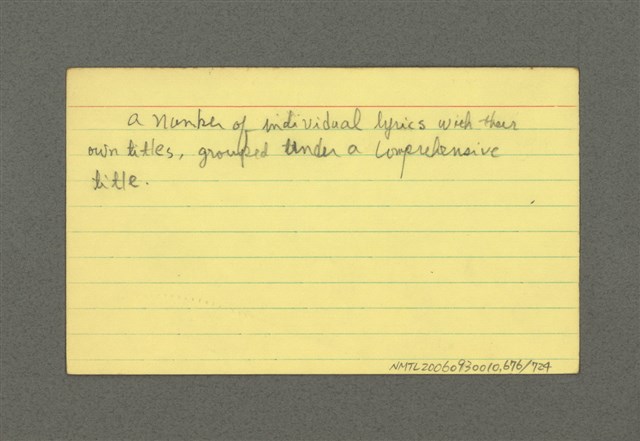 a number of individual lyrics with their
own titles, grouped under a comprehensive
title.
NMTL20060930010,676/724